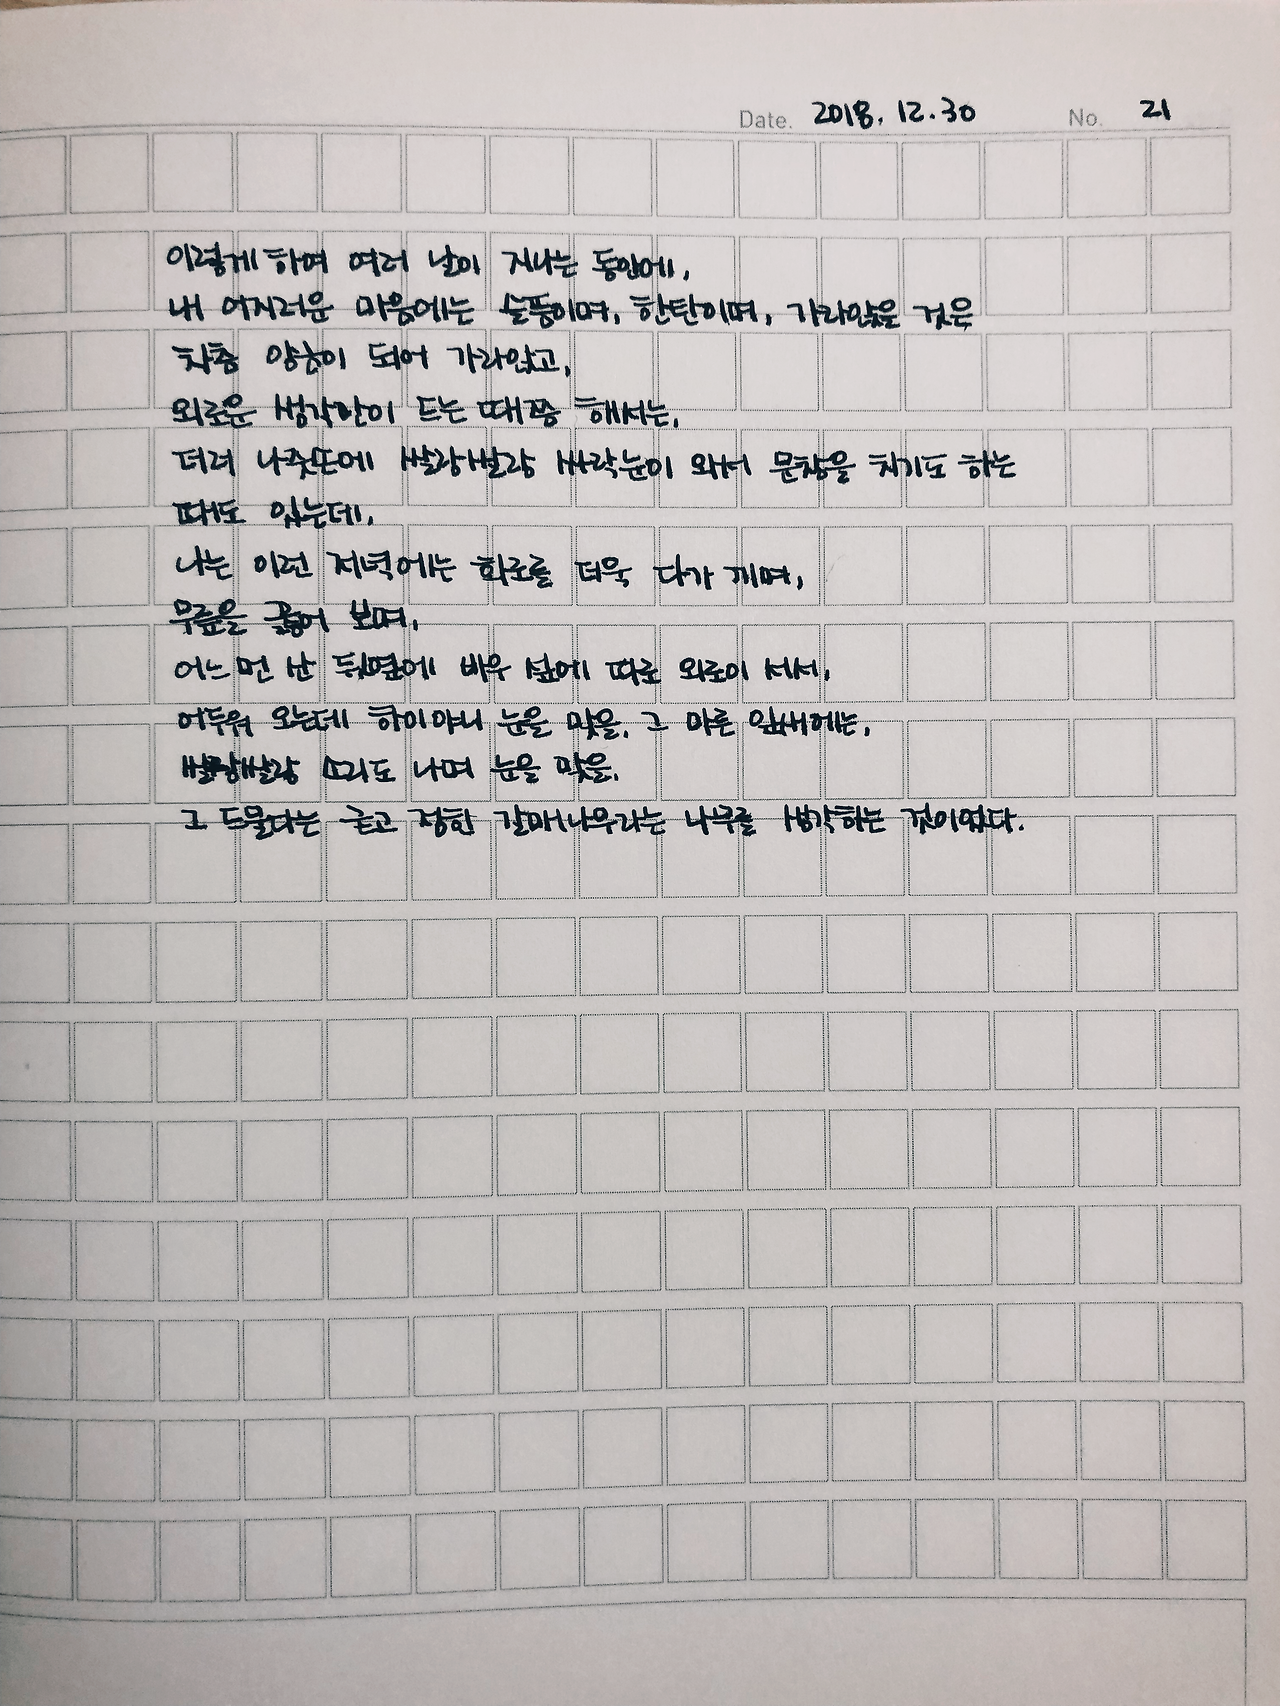 Date. 2018. 12. 30 No. 21
이렇게 하여 여러 날이 지나는 동안에,
내 어지러운 마음에는 슬픔이며, 한탄이며, 가라앉을 것은
차츰 앙금이 되어 가라앉고,
외로운 생각만이 드는 때쯤 해서는,
더러 나줏손에 쌀랑쌀랑 싸락눈이 와서 문창을 치기도 하는
때도 있는데,
나는 이런 저녁에는 화로를 더욱 다가 끼며,
무릎을 꿇어 보며,
어느 먼 산 뒷옆에 바우 섶에 따로 외로이 서서,
어두워 오는데 하이야니 눈을 맞을, 그 마른 잎새에는,
쌀랑쌀랑 소리도 나며 눈을 맞을,
그 드물다는 굳고 정한 갈매나무라는 나무를 생각하는 것이었다.